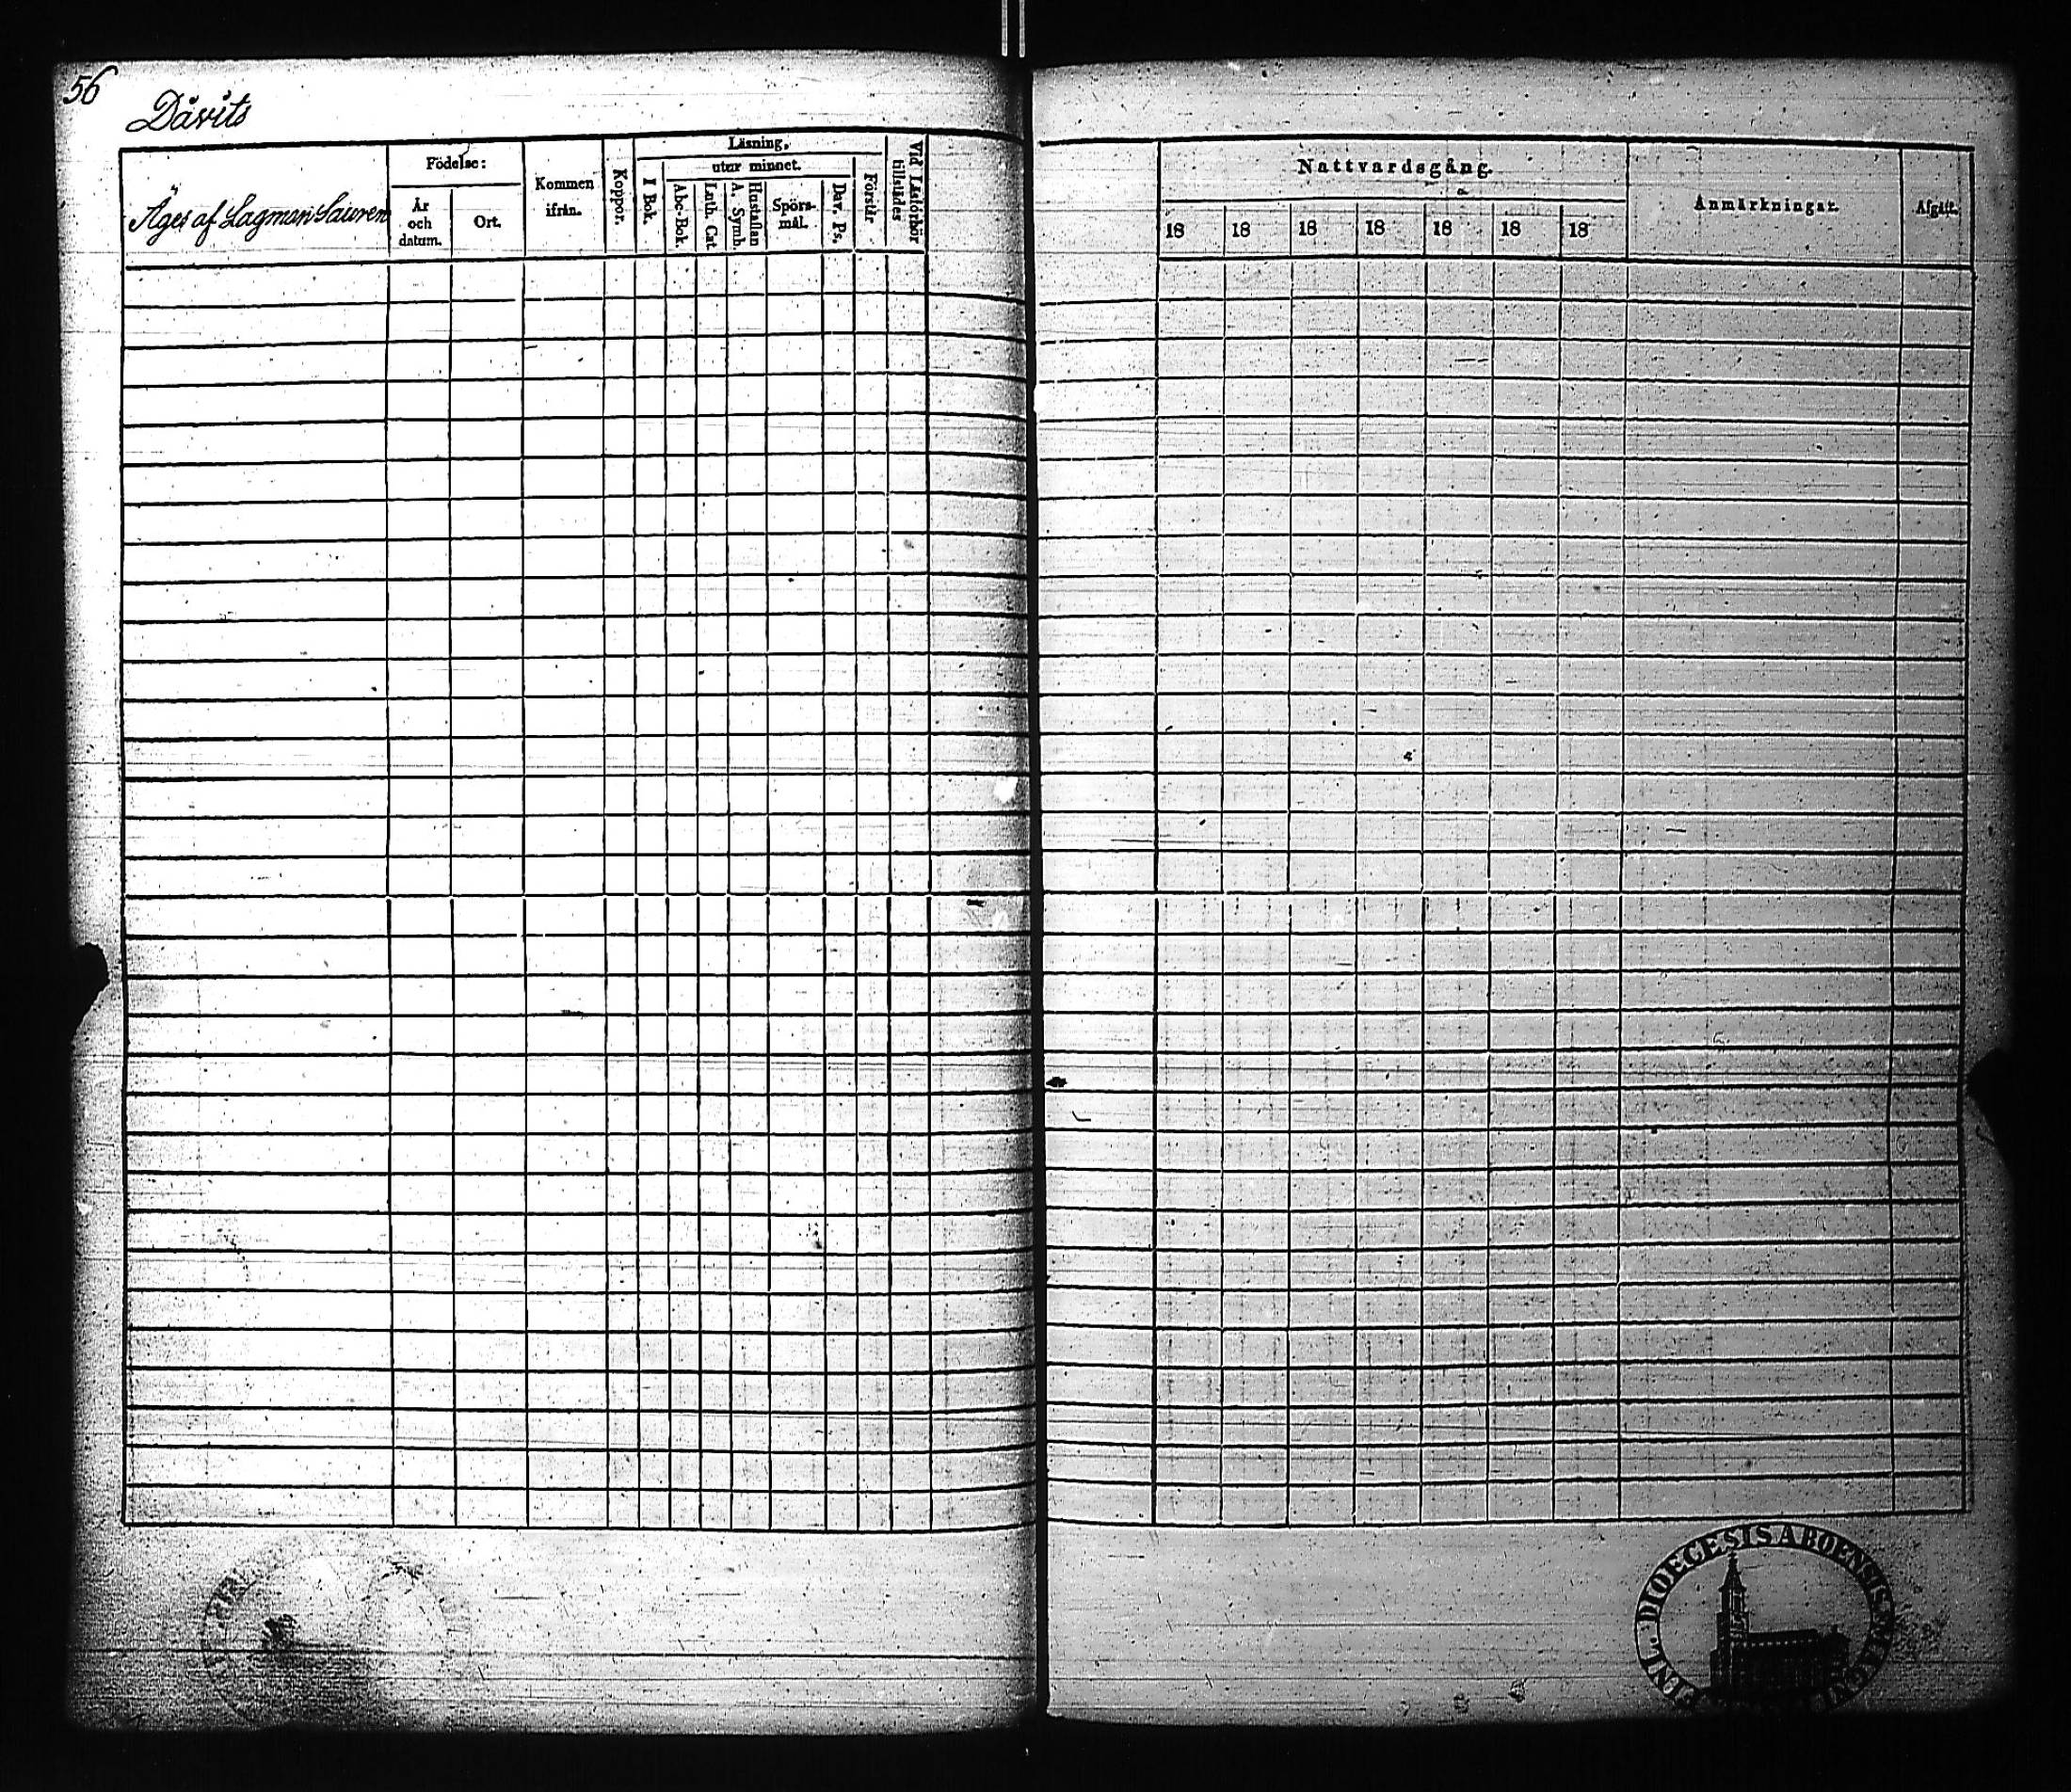 56
Dåvits
Äges af Lagman Sauren
Födelse:
År
och
datum.
Ort.
Kommen
ifrån.
Koppor.
Läsning,
I Bok.
utur minnet.
Abc-Bok.
Luth. Cat.
A. Symb.
Hustaflan
Spörs-
mål.
Dav. Ps.
Förstår
Vid Läsförhör
tillstädes
Nattvardsgång.
18 18 18 18 18 18 18
Anmärkningar.
Afgått.
FINL. DIOECESIS ABOENSIS